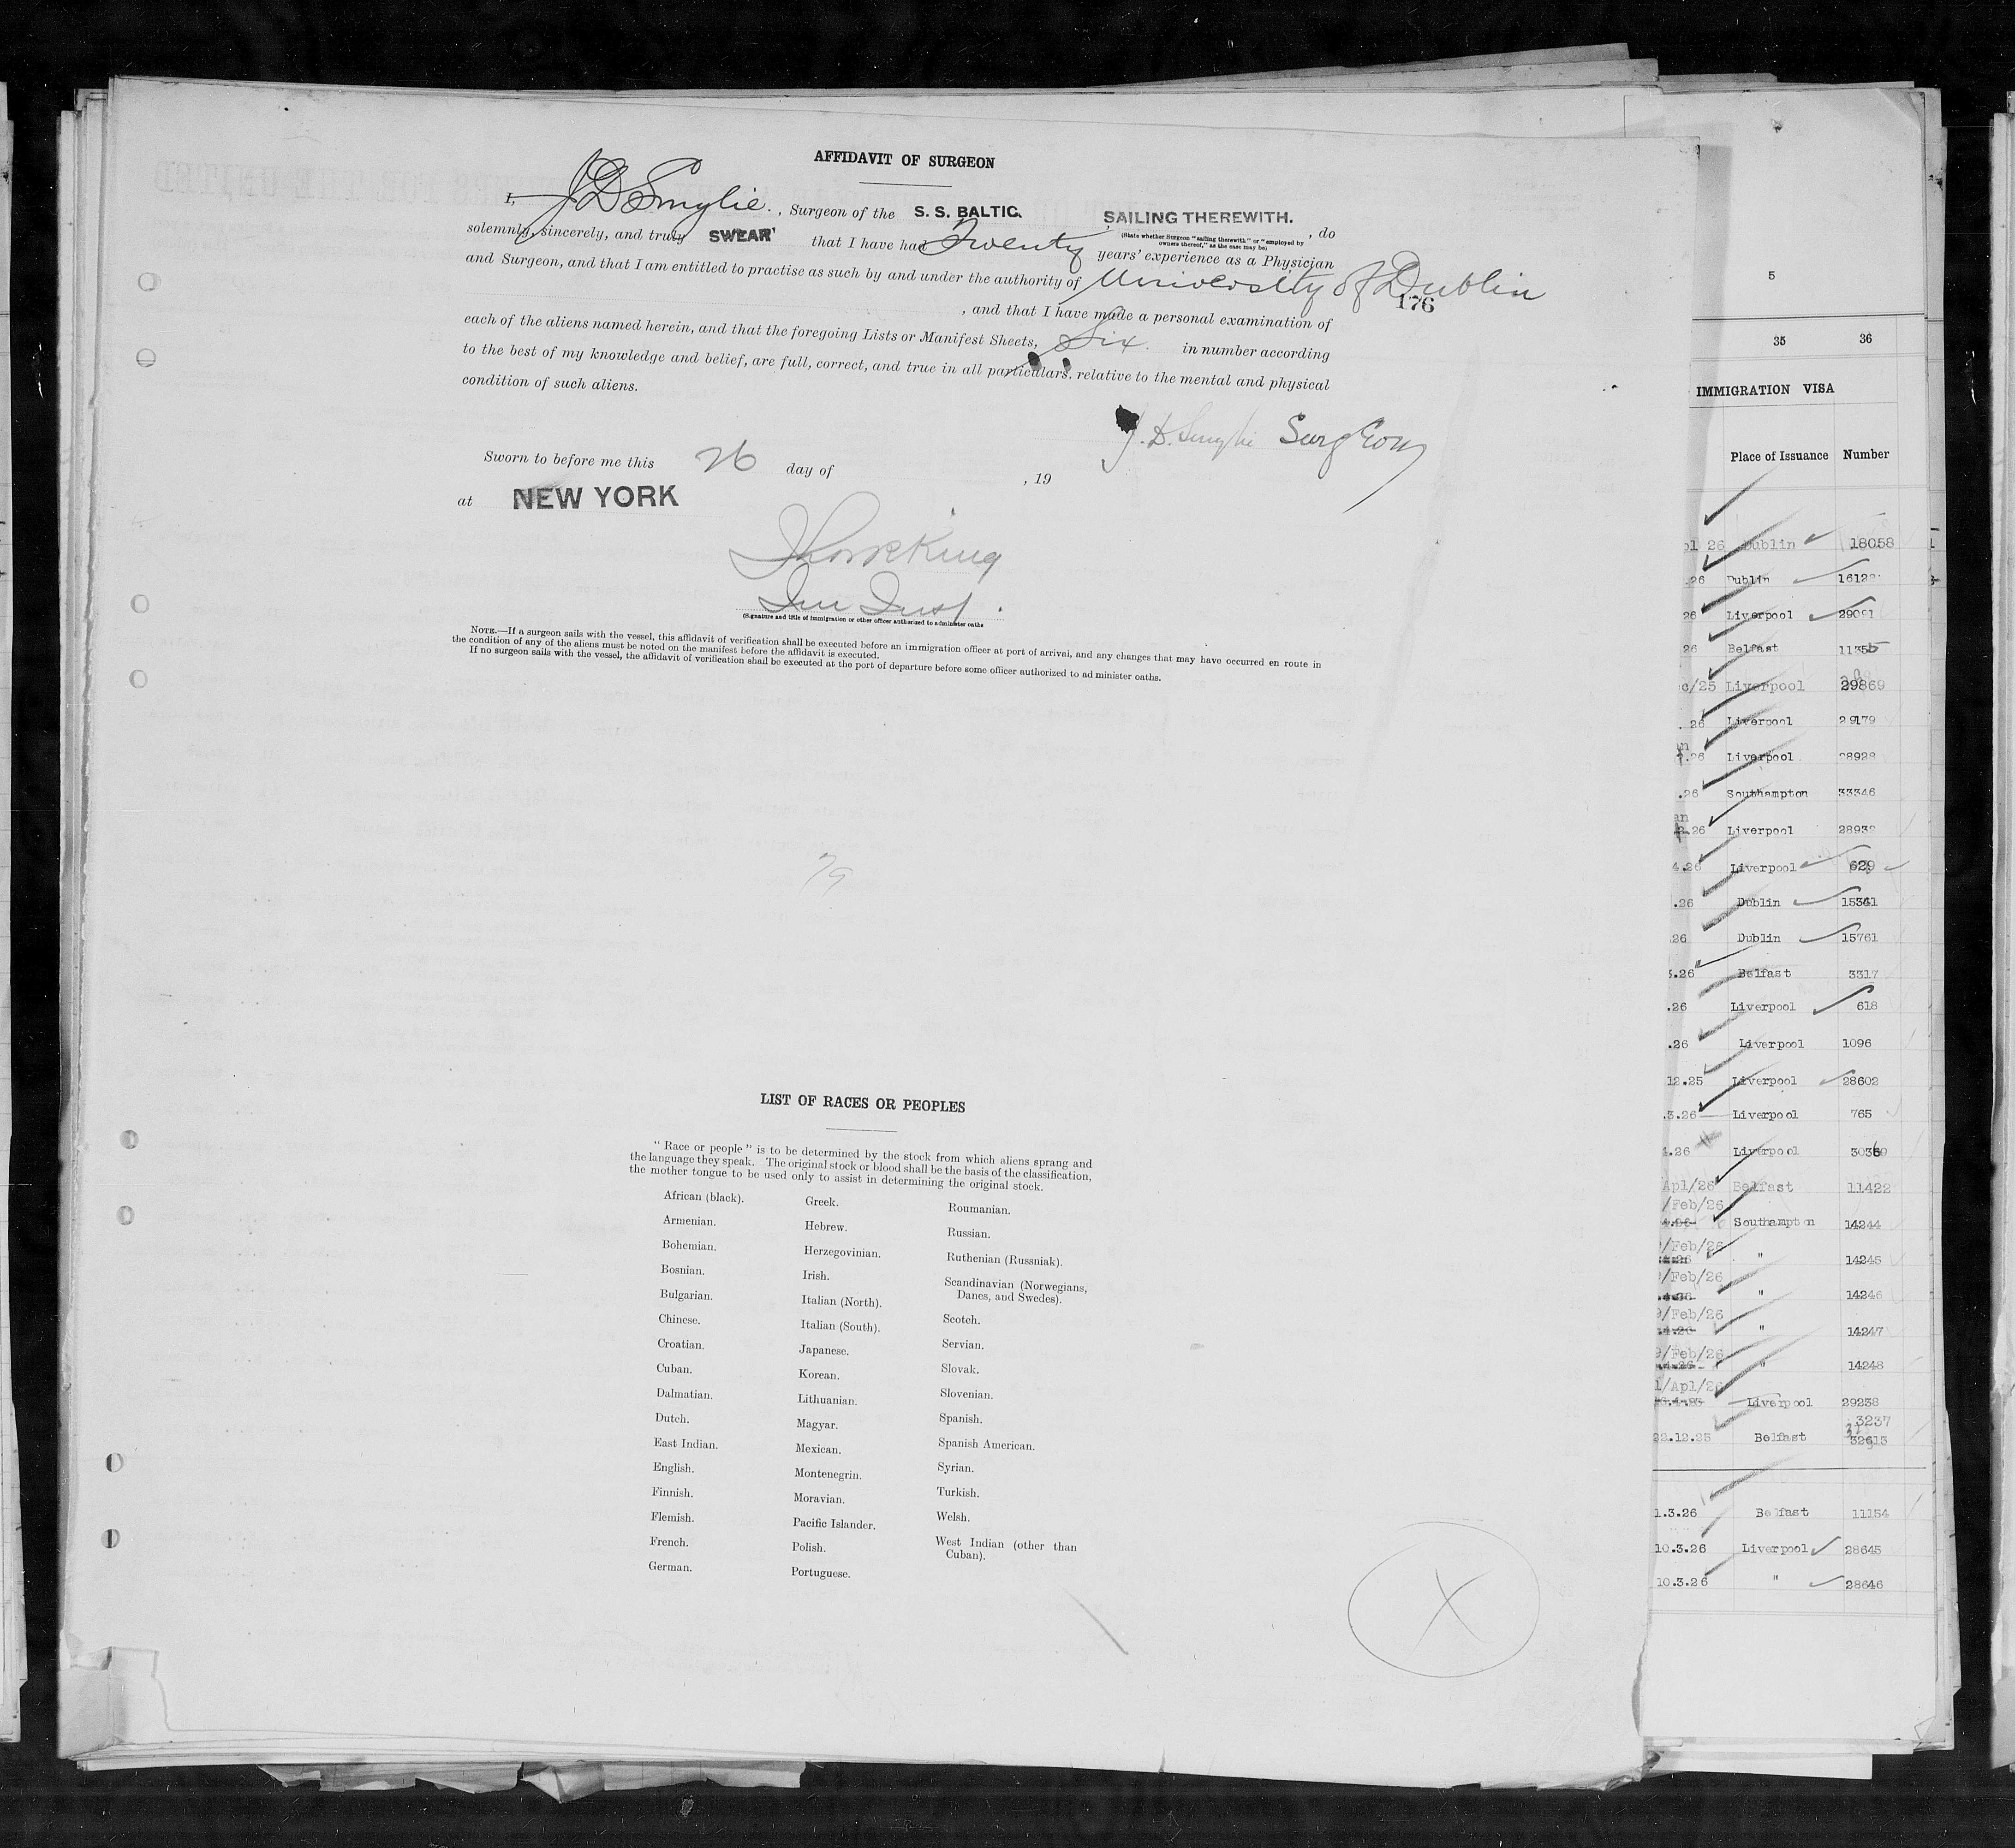 AFFIDAVIT OF SURGEON
I, J D Smylie. , Surgeon of the S. S. BALTIC. SAILING THEREWITH. , do
(State whether Surgeon "sailing therewith" or "employed by
owners thereof," as the case may be)
solemnly, sincerely, and truly SWEAR that I have had Twenty years' experience as a Physician
and Surgeon, and that I am entitled to practise as such by and under the authority of University of Dublin
176
, and that I have made a personal examination of
each of the aliens named herein, and that the foregoing Lists or Manifest Sheets, Six. in number according
to the best of my knowledge and belief, are full, correct, and true in all particulars, relative to the mental and physical
condition of such aliens.
J. D. Smylie Surgeon
Sworn to before me this 26 day of , 19
at NEW YORK
Imm Insp.
(Signature and title of immigration or other officer authorized to administer oaths
NOTE.—If a surgeon sails with the vessel, this affidavit of verification shall be executed before an immigration officer at port of arrival, and any changes that may have occurred en route in
the condition of any of the aliens must be noted on the manifest before the affidavit is executed.
If no surgeon sails with the vessel, the affidavit of verification shall be executed at the port of departure before some officer authorized to ad minister oaths.
79
LIST OF RACES OR PEOPLES
"Race or people" is to be determined by the stock from which aliens sprang and
the language they speak. The original stock or blood shall be the basis of the classification,
the mother tongue to be used only to assist in determining the original stock.
African (black).
Armenian.
Bohemian.
Bosnian.
Bulgarian.
Chinese.
Croatian.
Cuban.
Dalmatian.
Dutch.
East Indian.
English.
Finnish.
Flemish.
French.
German.
Greek.
Hebrew.
Herzegovinian.
Irish.
Italian (North).
Italian (South).
Japanese.
Korean.
Lithuanian.
Magyar.
Mexican.
Montenegrin.
Moravian.
Pacific Islander.
Polish.
Portuguese.
Roumanian.
Russian.
Ruthenian (Russniak).
Scandinavian (Norwegians,
Danes, and Swedes).
Scotch.
Servian.
Slovak.
Slovenian.
Spanish.
Spanish American.
Syrian.
Turkish.
Welsh.
West Indian (other than
Cuban).
X
5
35 36
IMMIGRATION VISA
Place of Issuance Number
26 Dublin 18058
.26 Dublin
26 Liverpool
26 Belfast 11355
c/25 Liverpool 29869
26 Liverpool 29179
.26 Liverpool 28928
.26 Southampton 33346
.26 Liverpool
4.26 Liverpool 629
.26 Dublin
.26 Dublin 15761
3.26 Belfast 3317
.26 Liverpool 618
.26 Liverpool 1096
12.25 Liverpool 28602
.3.26 Liverpool 765
4.26 Liverpool
Apl/26 Belfast 11422
/Feb/26
Southampton 14244
/Feb/26
" 14245
/Feb/26
" 14246
9/Feb/26
" 14247
9/Feb/26
" 14248
1/Apl/26
Liverpool 29238
3237
22.12.25 Belfast 32613
1.3.26 Belfast 11154
10.3.26 Liverpool 28645
10.3.26 " 28646